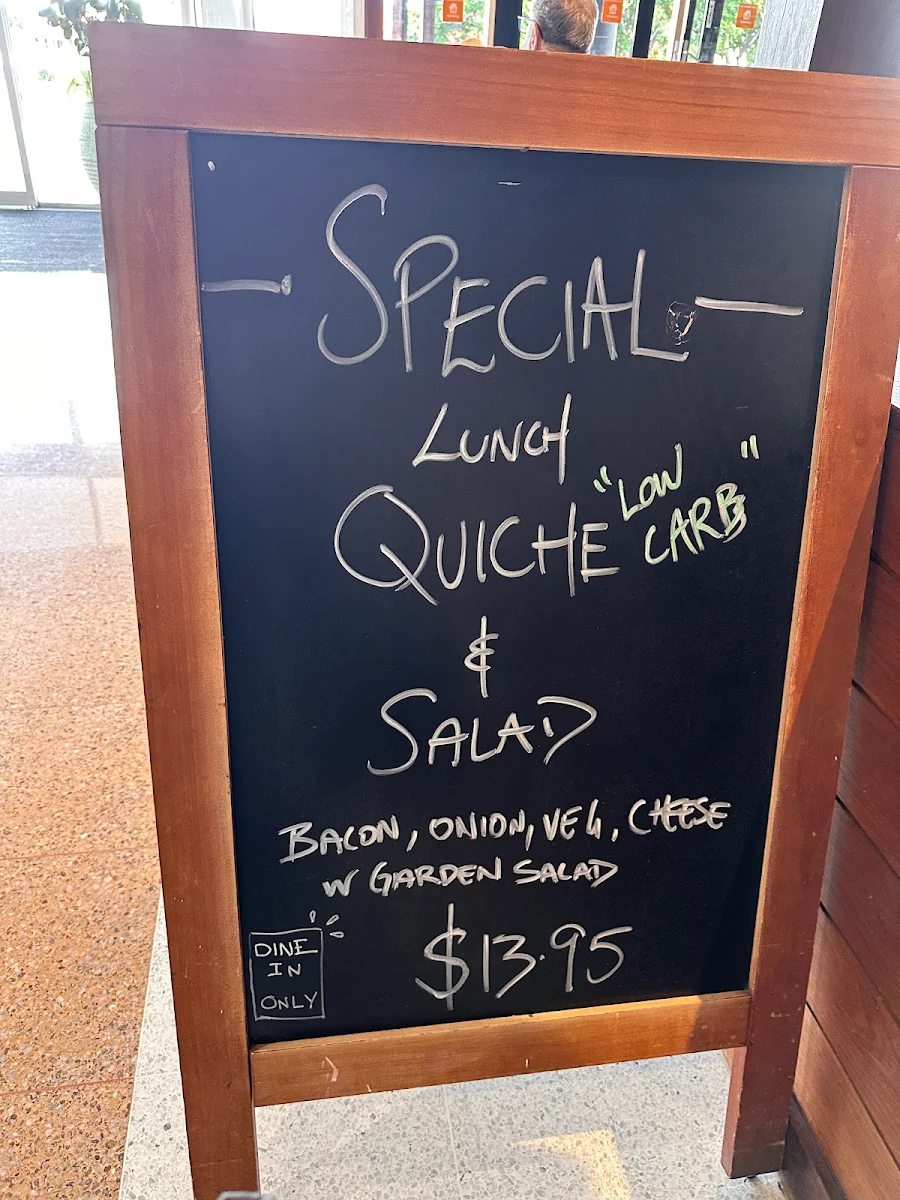 — SPECIAL —
LUNCH
QUICHE "LOW CARB"
&
SALAD
BACON, ONION, VEG, CHEESE
W GARDEN SALAD
$13.95
DINE
IN
ONLY